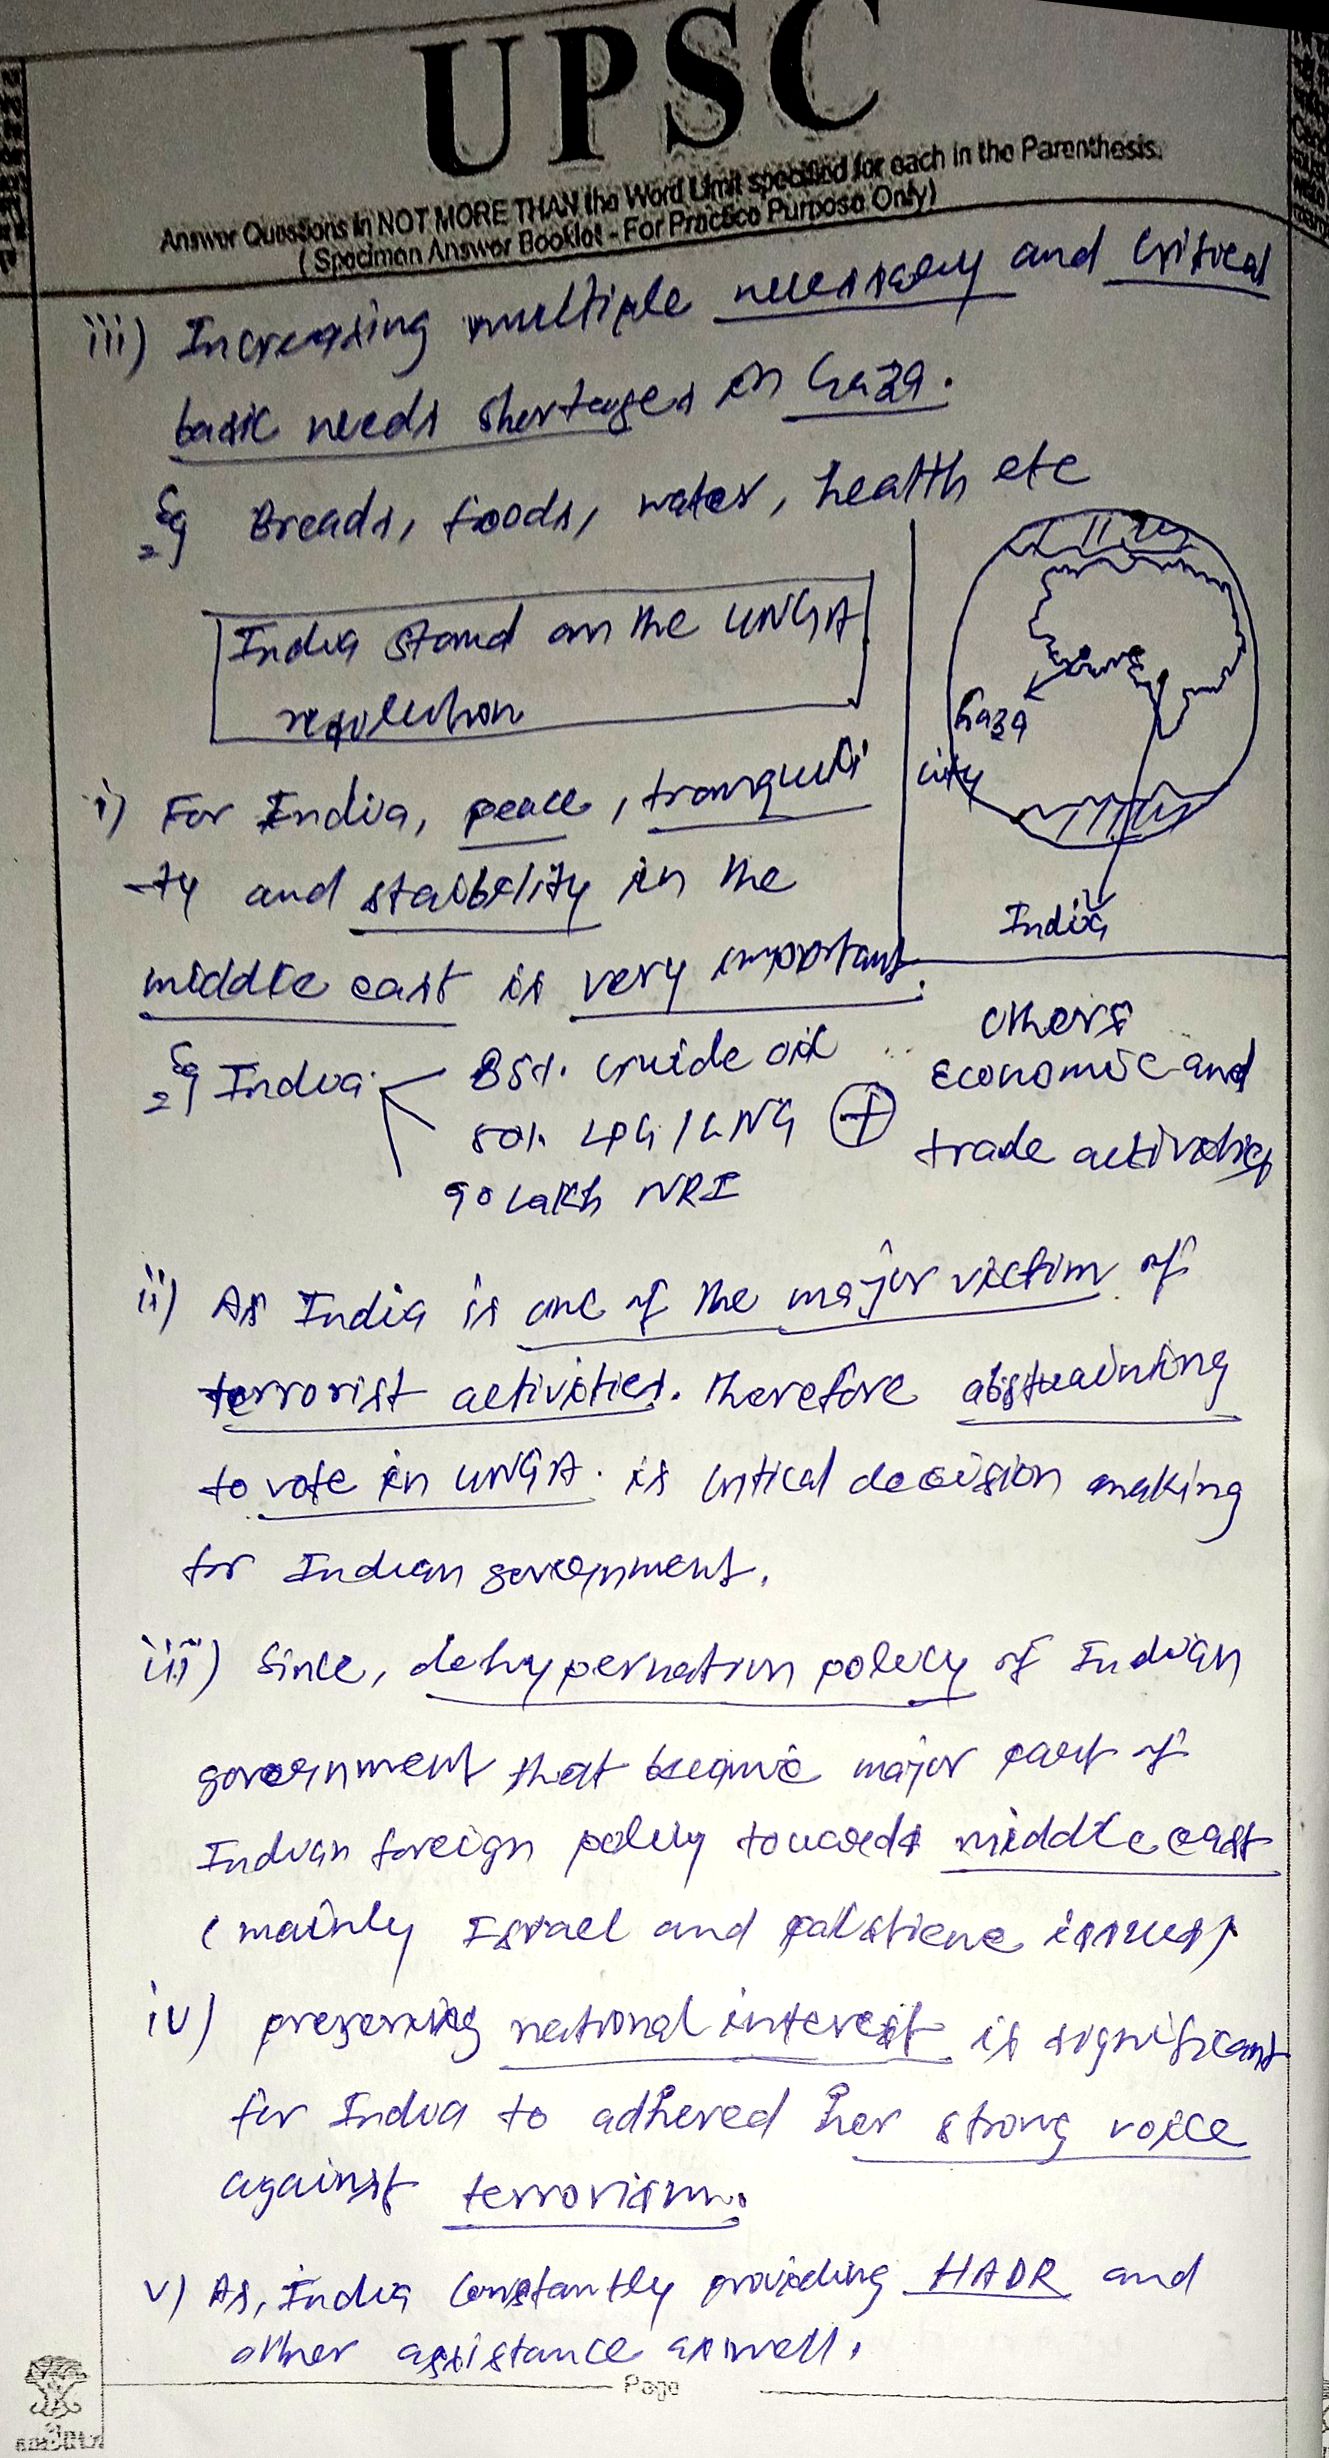 UPSC
Answer Questions in NOT MORE THAN the Word Limit specified for each in the Parenthesis.
( Specimen Answer Booklet - For Practice Purpose Only)
iii) Increasing multiple necessary and critical
basic needs shortages in Gaza.
Eg Breads, foods, water, health etc
India stand on the UNGA
resolution
Gaza
city
India
i) For India, peace, tranquili
-ty and staibility in the
middle east is very important.
Eg India
85% crude oil
50% LPG / LNG
90 Lakh NRI
+
others
economic and
trade activities
ii) As India is one of the major victim of
terrorist activities. therefore abstuainting
to vote in UNGA. is critical decision making
for Indian government.
iii) Since, dehypernation policy of Indian
government that became major part of
Indian foreign policy towards middle east
(mainly Israel and palstiene issues)
iv) preserving national interest is significant
for India to adhered her strong voice
against terrorism.
v) As, India constantly providing HADR and
other assistance as well.
Page